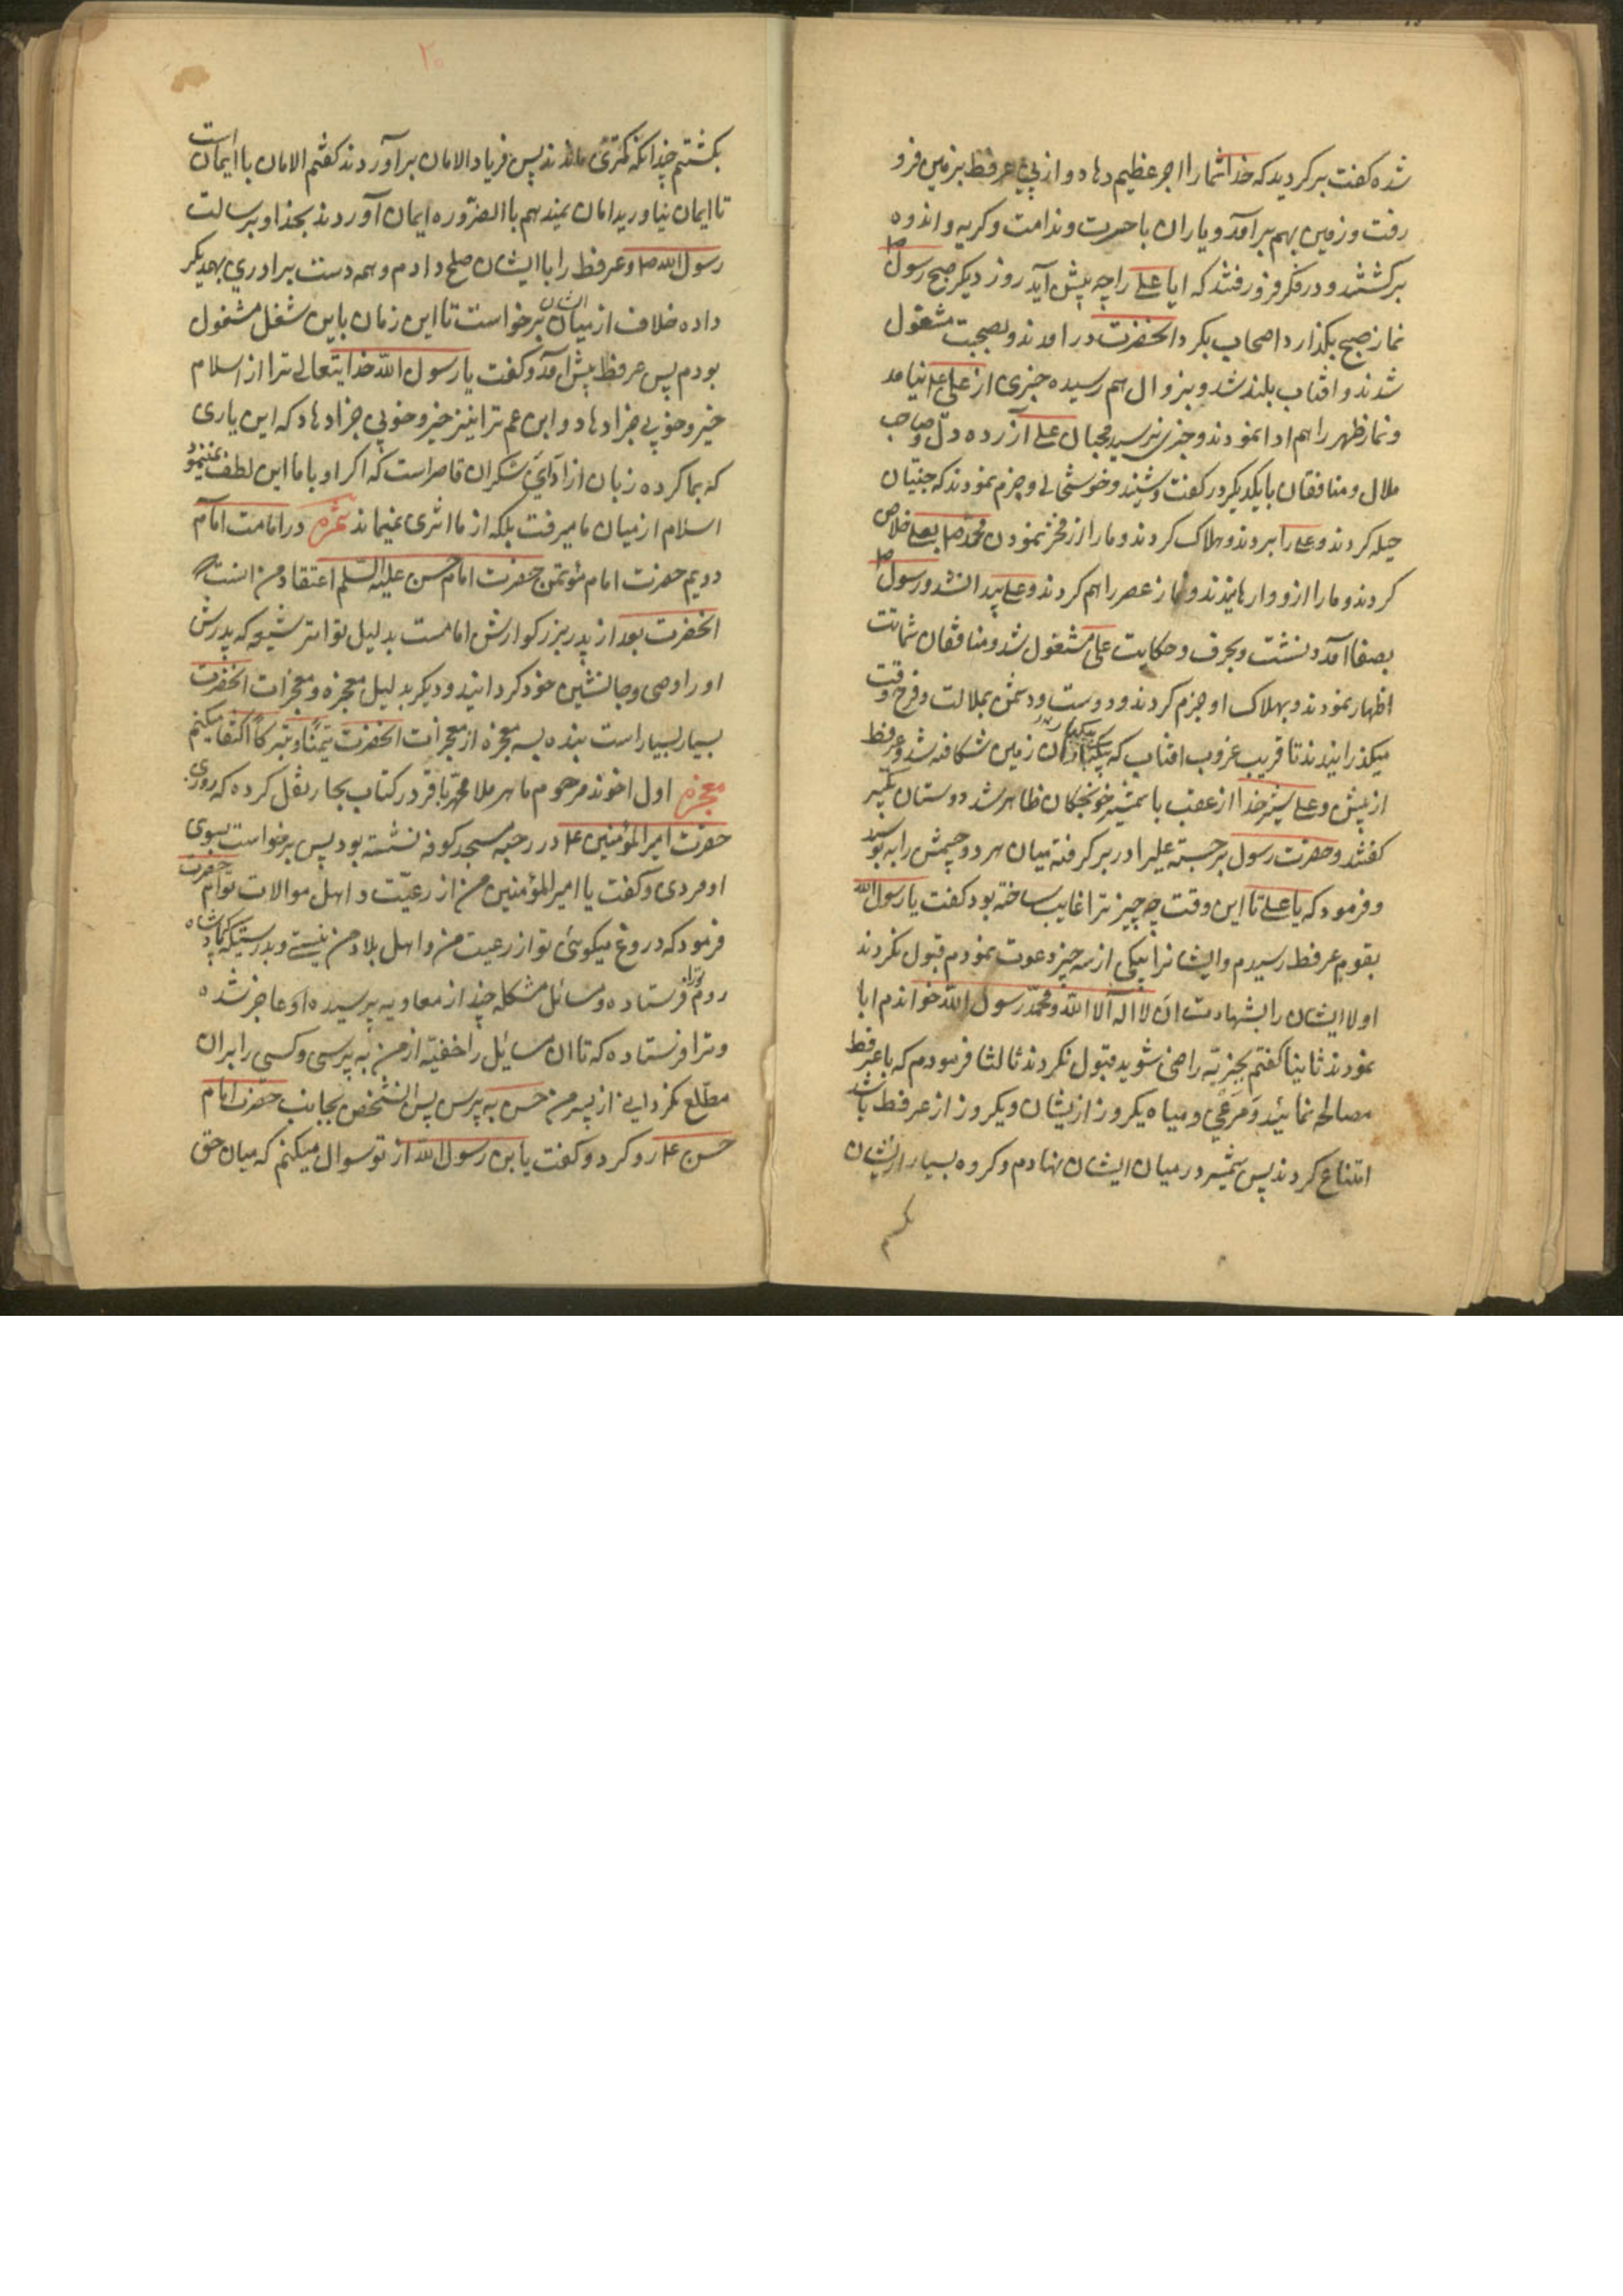 شده کفت بر کردید که خدا شما را اجر عظیم دهاد و از پی عرفط بزمین فرو
رفت و زمین بهم بر آمد و یاران با حسرت و ندامت و کریه و اندوه
برکشتند و در فکر فرو رفتند که ایا علی را چه پیش آید روز دیکر صبح رسول ص
نماز صبح بکذارد اصحاب بکرد انحضرت در امدند و بصحبت مشغول
شدند و افتاب بلند شد و بزوال هم رسیده خبری از علی ع نیامد
و نماز ظهر را هم ادا نمودند و خبری نرسید محبان علی آزرده دل و صاحب
ملال و منافقان با یکدیکر در کفت و شنید و خوشحالی و جزم نمودند که جنیّان
حیله کردند و علی را بردند و هلاک کردند و ما را از فخر نمودن محمد ص بعلی خلاص
کردند و ما را از او وارهانیدند و نماز عصر را هم کردند و علی پیدا نشد و رسول ص
بصفا آمد و نشت و بحرف و حکایت علی مشغول شد و منافقان شماتت
اظهار نمودند و بهلاک او جزم کردند و دوست و دشمن بملالت و فرح وقت
میکذرانیدند تا قریب غروب افتاب که یکبار ان زمین شکافته شد و عرفط
از پیش و علی شیر خدا از عقب با شمشیر خونچکان ظاهر شد دوستان تکبیر
کفتند و حضرت رسول برجسته علیرا در بر کرفته میان هر دو چشمش را بوسید
و فرمود که یا علی تا این وقت چه چیز ترا غایب ساخته بود کفت یا رسول الله
بقوم عرفط رسیدم و ایشانرا بیکی از سه چیز دعوت نمودم قبول نکردند
اولا ایشان را بشهادت ان لا اله الا الله و محمد رسول الله خواندم ابا
نمودند ثانیا کفتم بجزیّه راضی شوید قبول نکردند ثالثا فرمودم که با عرفط
مصالحه نمائید و مَرعَی و میاه یکروز از یشان و یکروز از عرفط باشد
امتناع کردند پس شمشیر در میان ایشان نهادم و کروه بسیار از یشان
بکشتم
۲۰
بکشتم چندانکه کمتری ماندند پس فریاد الامان بر آوردند کفتم الامان با ایمان است
تا ایمان نیاورید امان نمیدهم با الضّروره ایمان آوردند بخدا و برسالت
رسول الله ص و عرفط را با ایشان صلح دادم و همه دست برادری بهمدیکر
داده خلاف از میان ایشان برخواست تا این زمان باین شغل مشغول
بودم پس عرفط پیش امد و کفت یا رسول الله خدایتعالی ترا از اسلام
خیر و خوبی جزا دهاد و ابن عم ترا نیز خیر و خوبی جزا دهاد که این یاری
که بما کرده زبان از ادآی شکر ان قاصر است که اکر او با ما این لطف نمینمود
اسلام از میان ما میرفت بلکه از ما اثری نمیماند ثمره در امامت امام
دویم حضرت امام مؤتمن حضرت امام حسن علیه السّلم اعتقاد من انست که
انحضرت بعد از پدر بزرکوارش امامست بدلیل تواتر شیعه که پدرش
او را وصی و جانشین خود کردانید و دیکر بدلیل معجزه و معجزات انحضرت
بسیار بسیار است بنده بسه معجزه از معجزات انحضرت تیمّنًا و تبرکًا اکتفا میکنم
معجزه اول اخوند مرحوم ماهر ملا محمّد باقر در کتاب بحار نقل کرده که روزی
حضرت امیر المؤمنین ع در رحبه مسجد کوفه نشسته بود پس برخواست بسوی
او مردی و کفت یا امیر المؤمنین من از رعیّت و اهل موالات توام حضرت
فرمود که دروغ میکوئی تو از رعیت من و اهل بلاد من نیستی و بدرستیکه پادشاه
روم ترا فرستاده و مسائل مشکله چند از معاویه پرسیده او عاجز شده
و ترا فرستاده که تا ان مسائل را خفیّه از من به پرسی و کسی را بران
مطّلع نکردانی از پسر من حسن به پرس پس انشخص بجانب حضرت امام
حسن ع رو کرد و کفت یابن رسول الله از تو سوال میکنم که میان حق